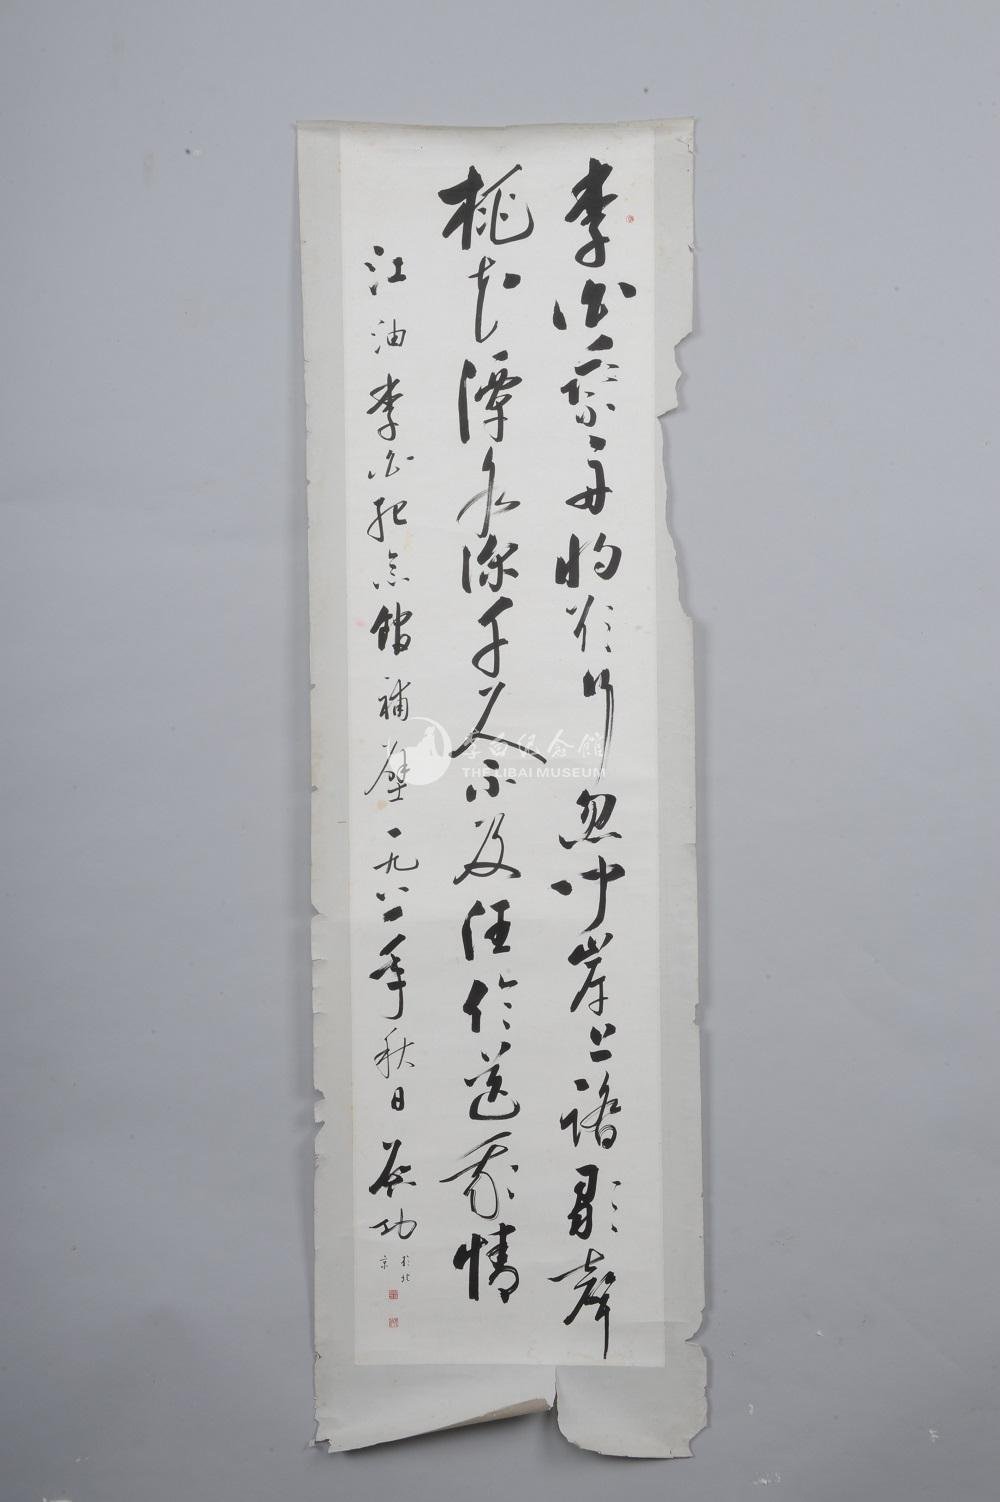 李白乘舟将欲行忽聞岸上踏歌聲
桃花潭水深千尺不及汪倫送我情
江油李白紀念館補壁一九八二年秋日啟功
於北
京
李白纪念館
THE LIBAI MUSEUM